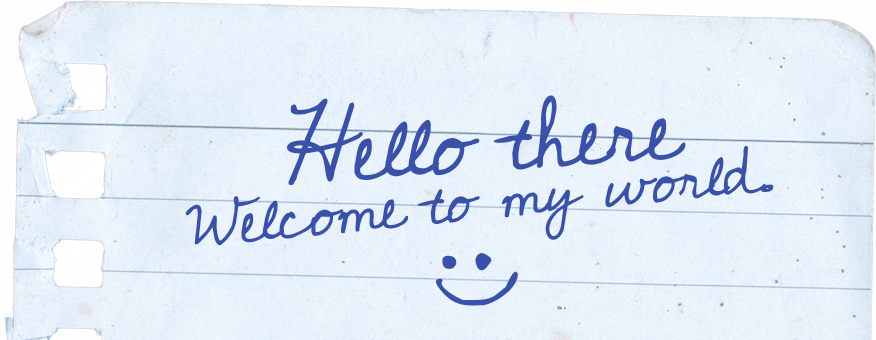 Hello there
Welcome to my world.